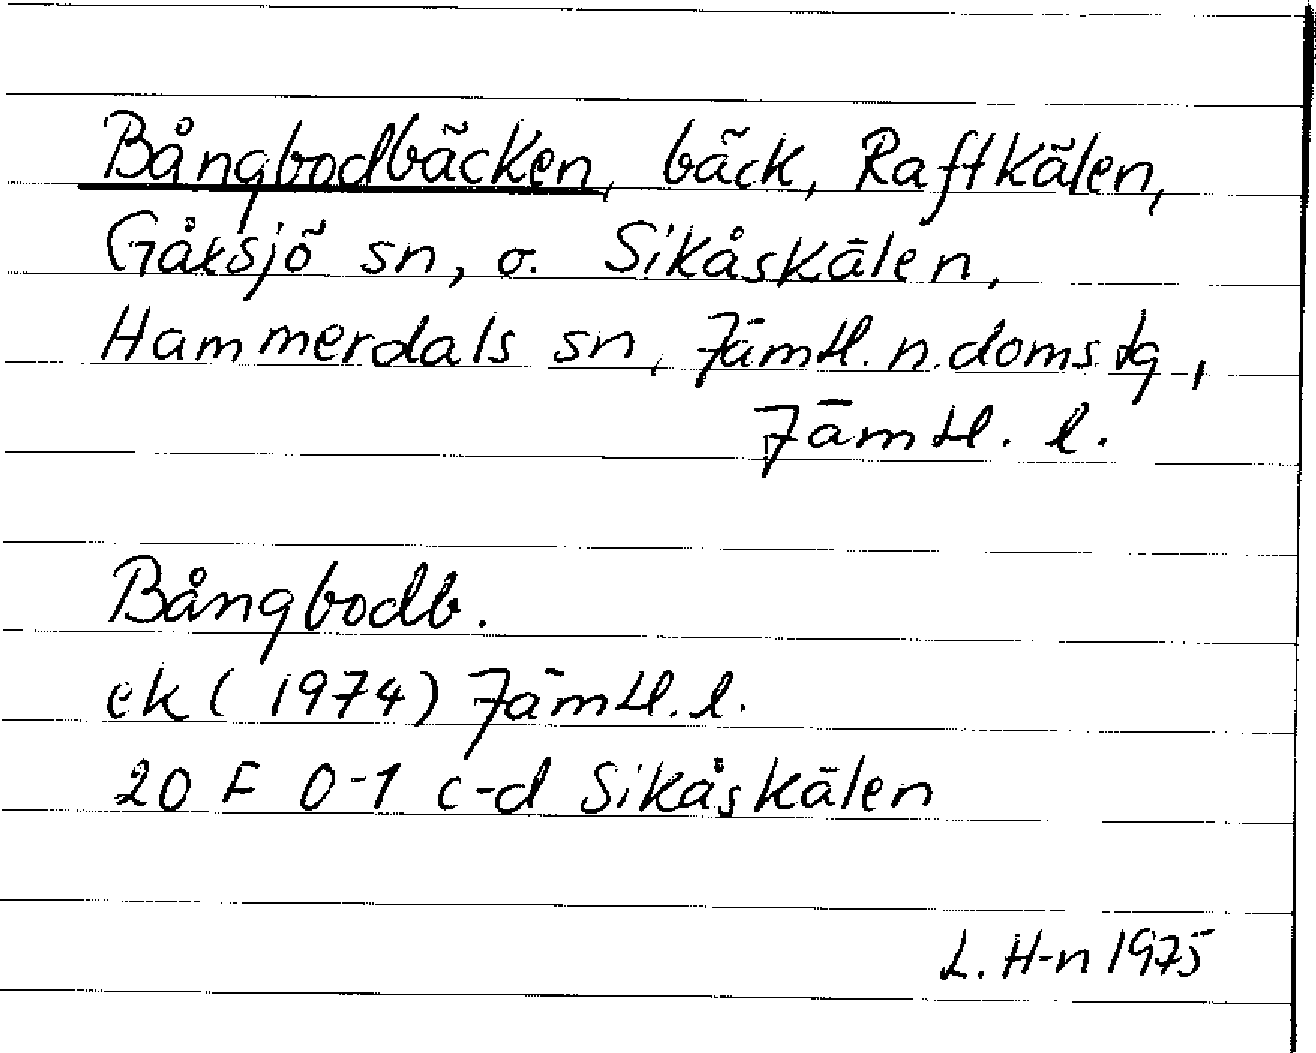 Bångbodbäcken, bäck, Raftkälen,
Gåxsjö sn, o. Sikåskälen,
Hammerdals sn, Jämtl. n. doms.tg,
Jämtl. l.
Bångbodb.
ek (1974) Jämtl. l.
20 F 0-1 c-d Sikåskälen
L. H-n 1975